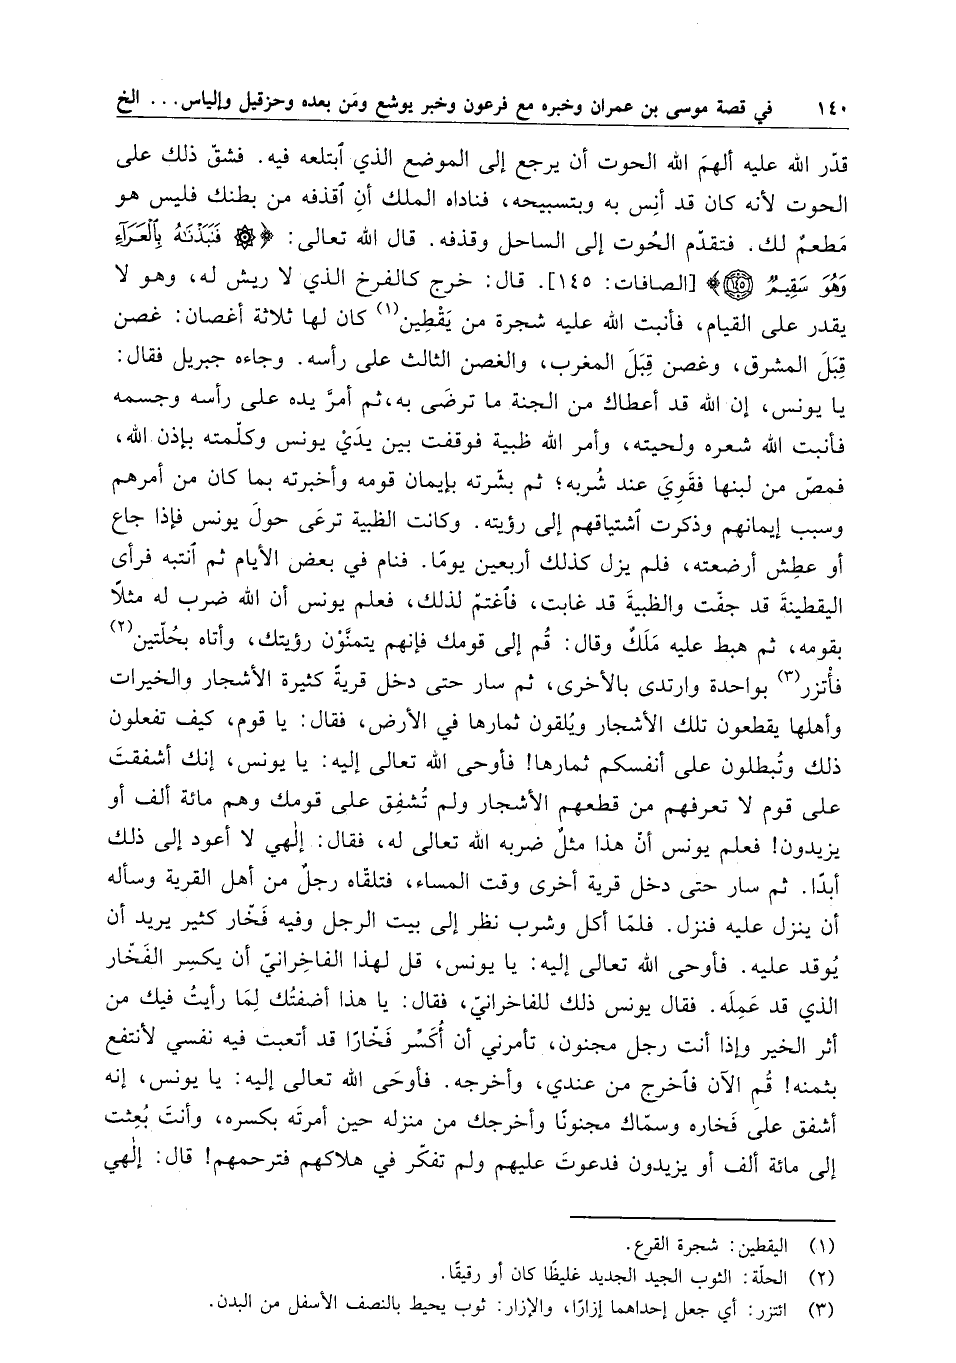 ١٤٠ في قصة موسى بن عمران وخبره مع فرعون وخبر يوشع ومَن بعده وحزقيل وإلياس... الخ
قدّر الله عليه ألهمَ الله الحوت أن يرجع إلى الموضع الذي ٱبتلعه فيه. فشقّ ذلك على
الحوت لأنه كان قد أنِس به وبتسبيحه، فناداه الملك أنِ ٱقذفه من بطنك فليس هو
مَطعمٌ لك. فتقدّم الحُوت إلى الساحل وقذفه. قال الله تعالى: ﴿۞ فَنَبَذْنَٰهُ بِٱلْعَرَآءِ
وَهُوَ سَقِيمٌ ١٤٥﴾ [الصافات: ١٤٥]. قال: خرج كالفرخ الذي لا ريش له، وهو لا
يقدر على القيام، فأنبت الله عليه شجرة من يَقْطِين(١) كان لها ثلاثة أغصان: غصن
قِبَلَ المشرق، وغصن قِبَلَ المغرب، والغصن الثالث على رأسه. وجاءه جبريل فقال:
يا يونس، إن الله قد أعطاك من الجنة ما ترضَى به،ثم أمرَّ يده على رأسه وجسمه
فأنبت الله شعره ولحيته، وأمر الله ظبية فوقفت بين يدَيْ يونس وكلّمته بإذن الله،
فمصّ من لبنها فقَوِيَ عند شُربه؛ ثم بشّرته بإيمان قومه وأخبرته بما كان من أمرهم
وسبب إيمانهم وذكرت ٱشتياقهم إلى رؤيته. وكانت الظبية ترعَى حولَ يونس فإذا جاع
أو عطِش أرضعته، فلم يزل كذلك أربعين يومًا. فنام في بعض الأيام ثم ٱنتبه فرأى
اليقطينةَ قد جفّت والظبيةَ قد غابت، فٱغتمّ لذلك، فعلم يونس أن الله ضرب له مثلًا
بقومه، ثم هبط عليه مَلَكٌ وقال: قُم إلى قومك فإنهم يتمنَّوْن رؤيتك، وأتاه بحُلّتين(٢)
فأْتزر(٣) بواحدة وارتدى بالأخرى، ثم سار حتى دخل قريةً كثيرة الأشجار والخيرات
وأهلها يقطعون تلك الأشجار ويُلقون ثمارها في الأرض، فقال: يا قوم، كيف تفعلون
ذلك وتُبطلون على أنفسكم ثمارها! فأوحى الله تعالى إليه: يا يونس، إنك أشفقتَ
على قوم لا تعرفهم من قطعهم الأشجار ولم تُشفِق على قومك وهم مائة ألف أو
يزيدون! فعلم يونس أنّ هذا مثلٌ ضربه الله تعالى له، فقال: إلٰهي لا أعود إلى ذلك
أبدًا. ثم سار حتى دخل قرية أخرى وقت المساء، فتلقّاه رجلٌ من أهل القرية وسأله
أن ينزل عليه فنزل. فلمّا أكل وشرب نظر إلى بيت الرجل وفيه فَخّار كثير يريد أن
يُوقد عليه. فأوحى الله تعالى إليه: يا يونس، قل لهذا الفاخِرانيّ أن يكسِر الفَخّار
الذي قد عَمِلَه. فقال يونس ذلك للفاخرانيّ، فقال: يا هذا أضفتُك لِمَا رأيتُ فيك من
أثر الخير وإذا أنت رجل مجنون، تأمرني أن أُكَسِّر فَخّارًا قد أتعبت فيه نفسي لأنتفع
بثمنه! قُم الآن فٱخرج من عندي، وأخرجه. فأوحَى الله تعالى إليه: يا يونس، إنه
أشفق على فَخاره وسمّاك مجنونًا وأخرجك من منزله حين أمرتَه بكسره، وأنتَ بُعِثت
إلى مائة ألف أو يزيدون فدعوتَ عليهم ولم تفكّر في هلاكهم فترحمهم! قال: إلٰهي
(١) اليقطين: شجرة القرع.
(٢) الحلّة: الثوب الجيد الجديد غليظًا كان أو رقيقًا.
(٣) ائتزر: أي جعل إحداهما إزارًا، والإزار: ثوب يحيط بالنصف الأسفل من البدن.